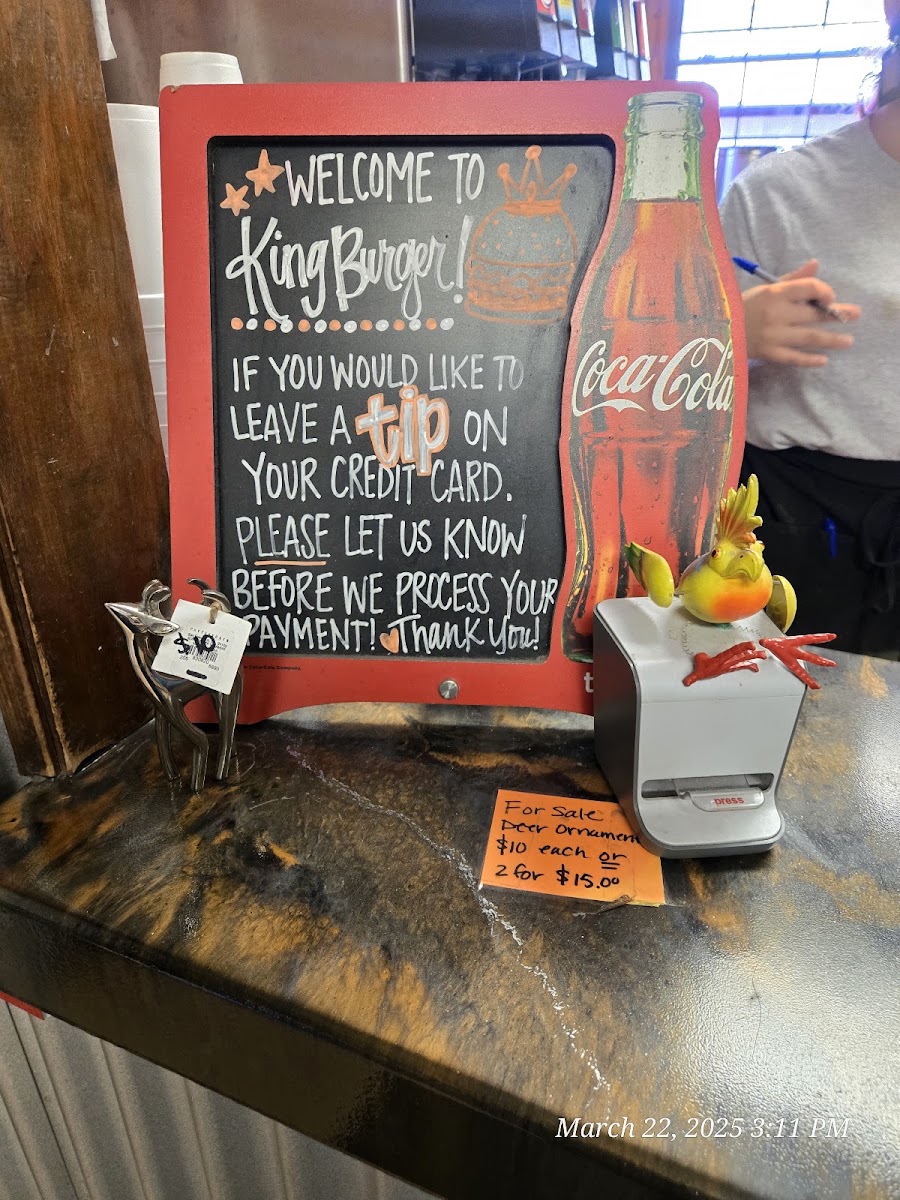 WELCOME TO
King Burger!
IF YOU WOULD LIKE TO
LEAVE A tip ON
YOUR CREDIT CARD.
PLEASE LET US KNOW
BEFORE WE PROCESS YOUR
PAYMENT! Thank You!
Coca-Cola
$10
press
For Sale
Deer Ornament
$10 each or
2 for $15.00
March 22, 2025 3:11 PM